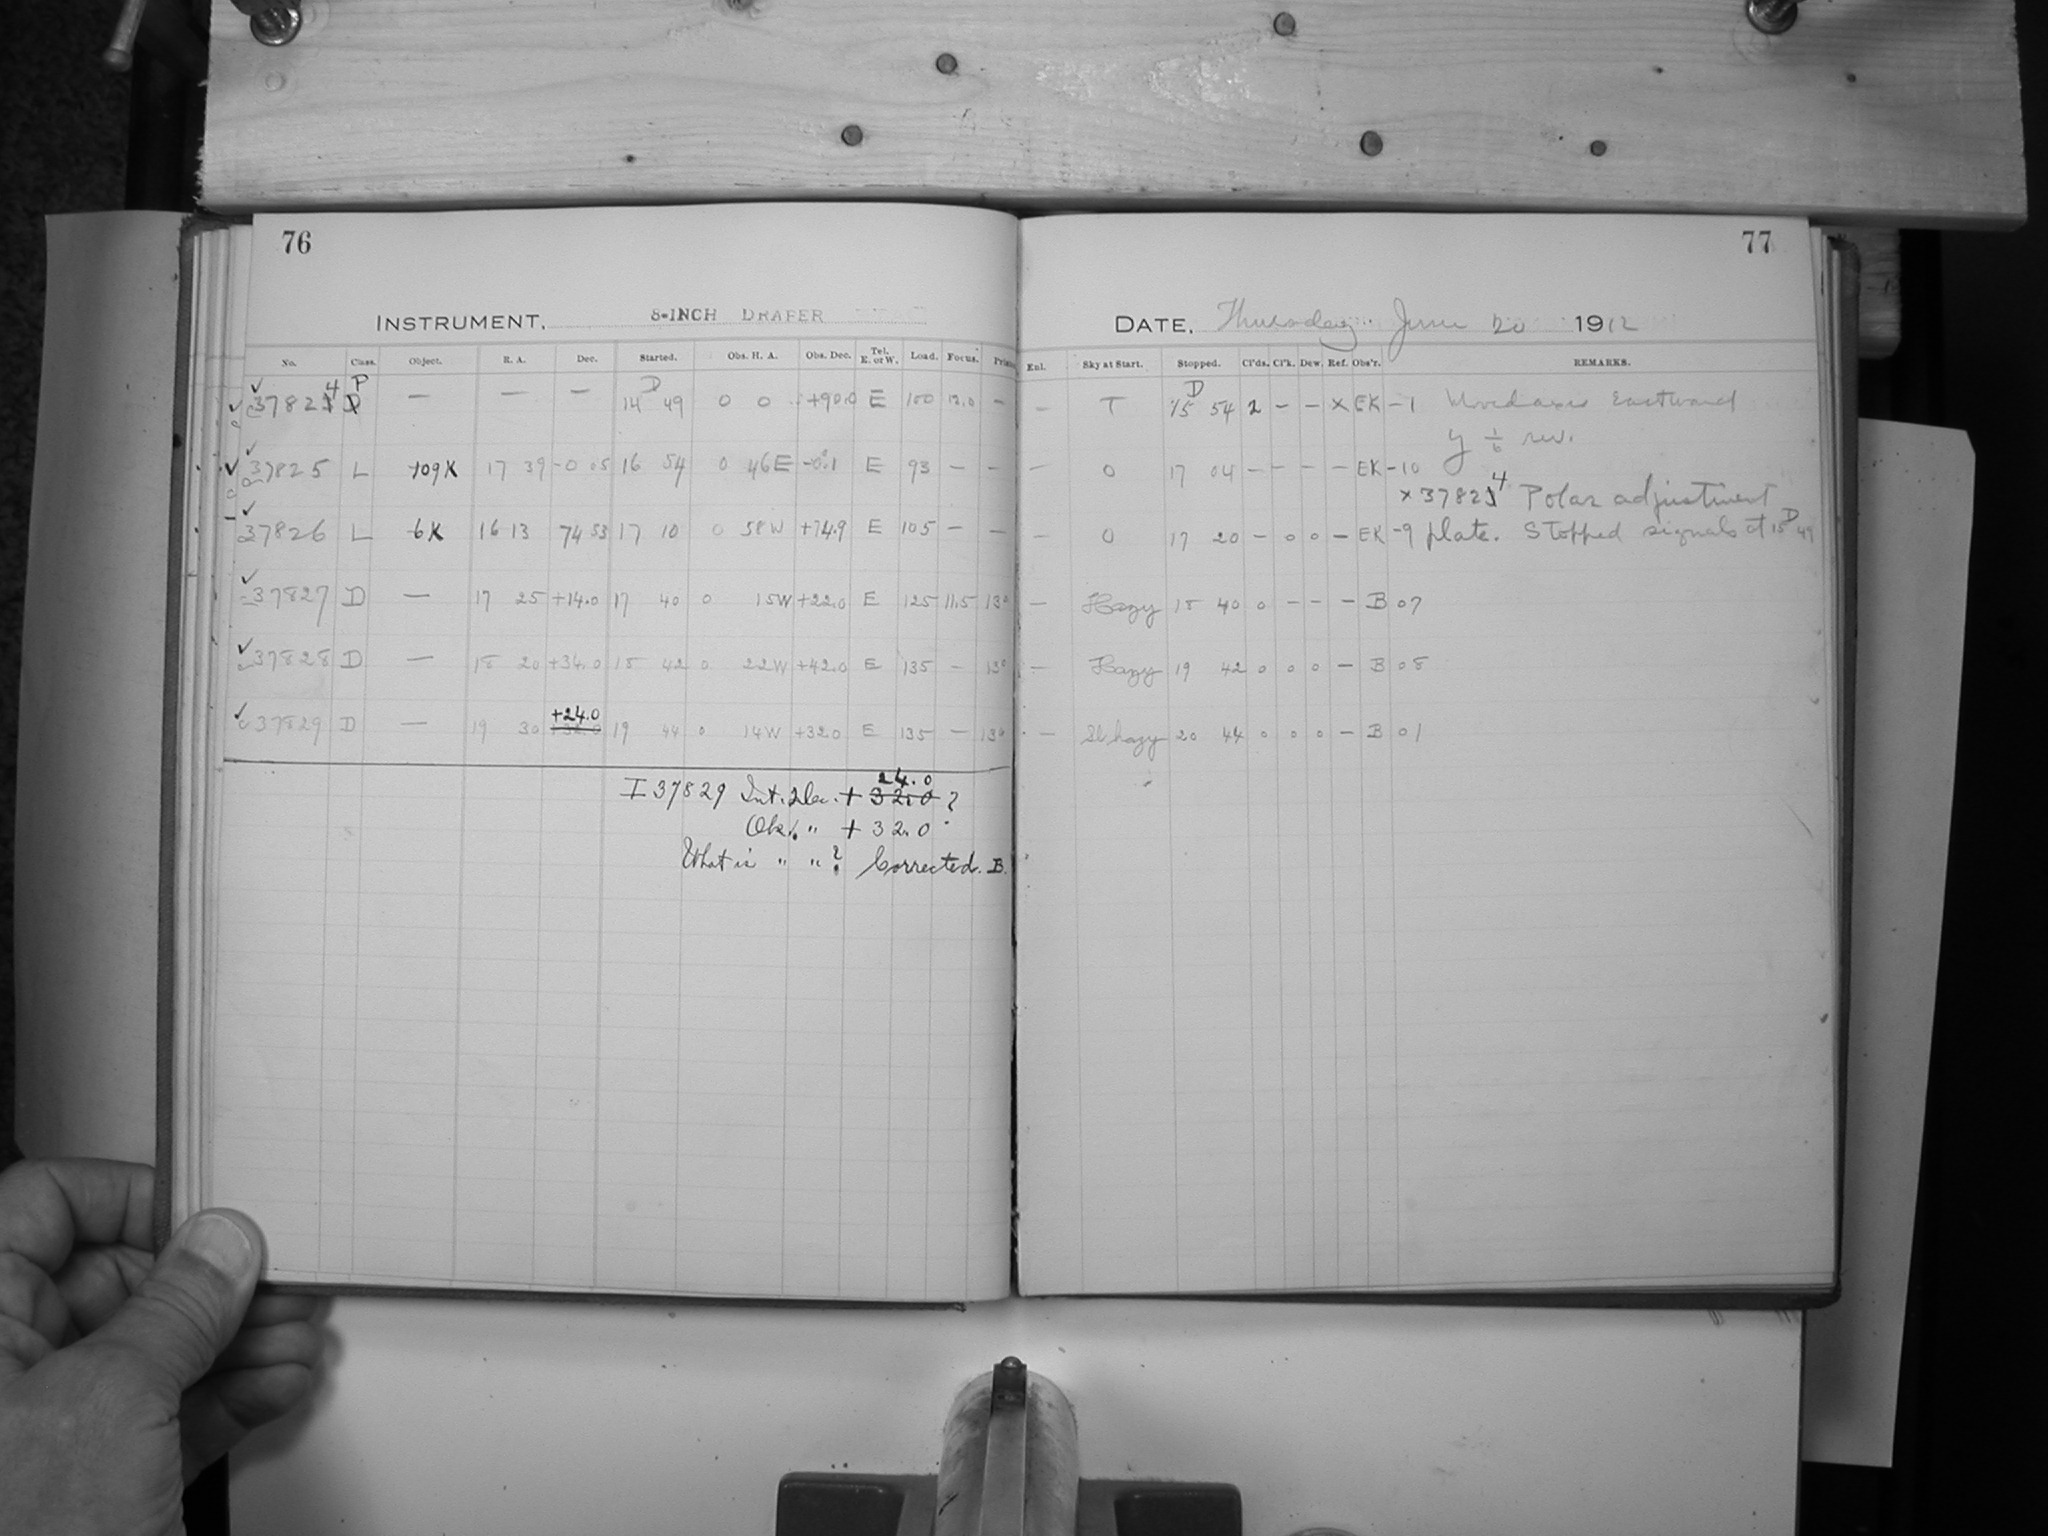 76
INSTRUMENT, 8-INCH DRAPER
No. Class. Object. R. A. Dec. Started. Obs. H. A. Obs. Dec. Tel. E. or W. Load. Focus.
4 P D
37823 D — — — 14 49 0 0 +90.0 E 100 12.0 —
37825 L 109K 17 39 -0 05 16 54 0 46E -0.1 E 93 — —
37826 L 6K 16 13 74 53 17 10 0 58W +74.9 E 105 — —
37827 D — 17 25 +14.0 17 40 0 15W +22.0 E 125 11.5 13
37828 D — 18 20 +34.0 18 42 0 22W +42.0 E 135 — 13
+24.0
37829 D — 19 30 +32.0 19 44 0 14W +32.0 E 135 — 13
24.0
I 37829 Int. Dec. + 32.0 ?
Obs. " + 32.0
What is " " ? Corrected. B.
77
DATE, Thursday June 20 1912
Enl. Sky at Start. Stopped. Cl'ds. Cl'k. Dew. Ref. Obs'r. REMARKS.
D
— T 15 54 2 — — X EK -1 Moved axis Eastward
y 1/6 rev.
— 0 17 04 — — — — EK -10
4
x 37823 Polar adjustment
— 0 17 20 — 0 0 — EK -9 plate. Stopped signals at 15 D 49
— Hazy 18 40 0 — — — B 07
— Hazy 19 42 0 0 0 — B 08
— Sl hazy 20 44 0 0 0 — B 01